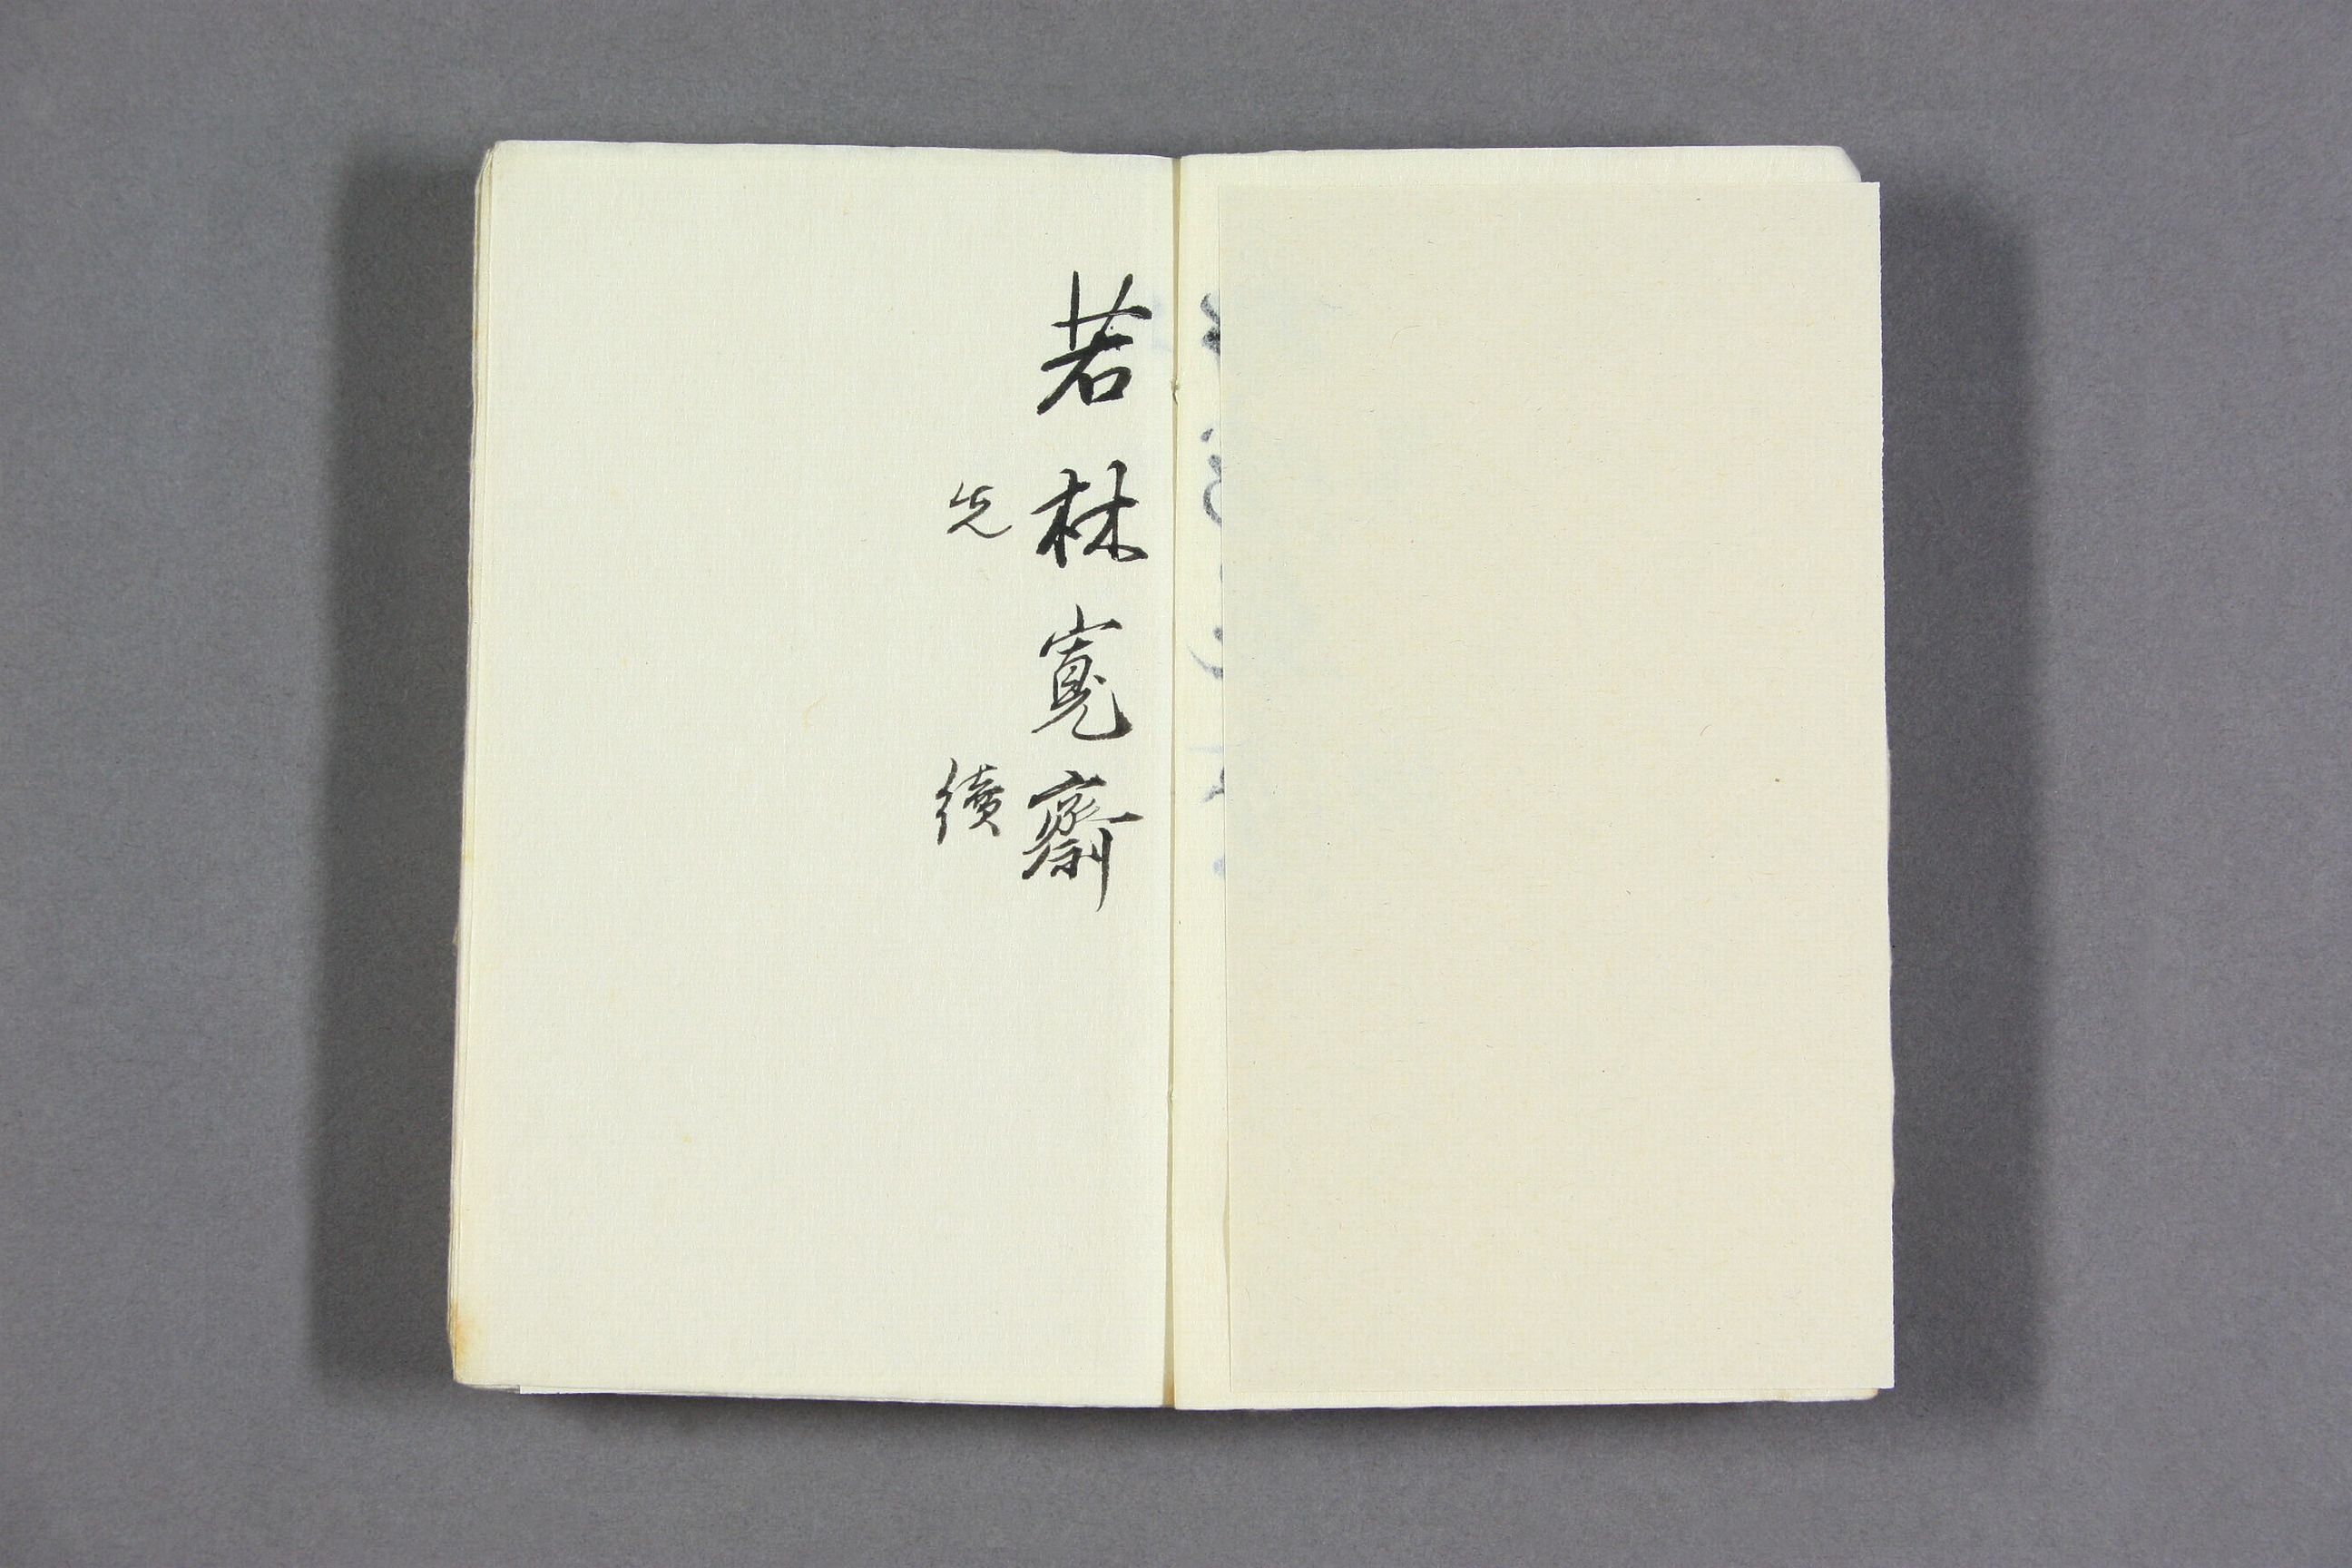 若林寛齋
先
續